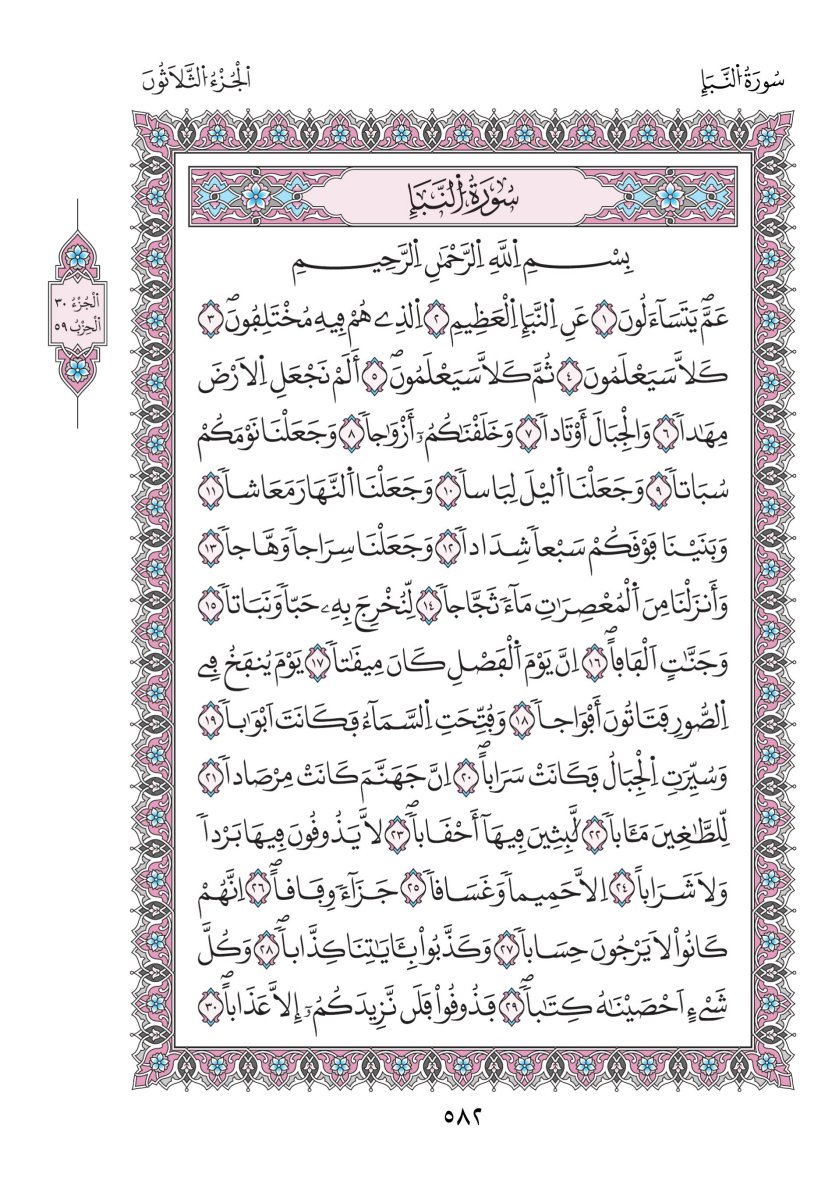 سُورَةُ اُ۬لنَّبَإِ
اَ۬لْجُزْءُ اُ۬لثَّلَاثُونَ
سُورَةُ اُ۬لنَّبَإِ
بِسْمِ اِ۬للَّهِ اِ۬لرَّحْمَٰنِ اِ۬لرَّحِيمِ
عَمَّ يَتَسَآءَلُونَۖ ١ عَنِ اِ۬لنَّبَإِ اِ۬لْعَظِيمِ ٢ اِ۬لذِے هُمْ فِيهِ مُخْتَلِفُونَۖ ٣
كَلَّا سَيَعْلَمُونَ ٤ ثُمَّ كَلَّا سَيَعْلَمُونَۖ ٥ أَلَمْ نَجْعَلِ اِ۬لَارْضَ
مِهَٰداٗ ٦ وَالْجِبَالَ أَوْتَاداٗ ٧ وَخَلَقْنَٰكُمُۥٓ أَزْوَٰجاٗ ٨ وَجَعَلْنَا نَوْمَكُمْ
سُبَاتاٗ ٩ وَجَعَلْنَا اَ۬ليْلَ لِبَاساٗ ١٠ وَجَعَلْنَا اَ۬لنَّهَارَ مَعَاشاٗ ١١
وَبَنَيْنَا فَوْقَكُمْ سَبْعاٗ شِدَاداٗ ١٢ وَجَعَلْنَا سِرَاجاٗ وَهَّاجاٗ ١٣
وَأَنزَلْنَا مِنَ اَ۬لْمُعْصِرَٰتِ مَآءٗ ثَجَّاجاٗ ١٤ لِّنُخْرِجَ بِهِۦ حَبّاٗ وَنَبَاتاٗ ١٥
وَجَنَّٰتٍ اَلْفَافاًۖ ١٦ اِنَّ يَوْمَ اَ۬لْفَصْلِ كَانَ مِيقَٰتاٗ ١٧ يَوْمَ يُنفَخُ فِے
اِ۬لصُّورِ فَتَاتُونَ أَفْوَاجاٗ ١٨ وَفُتِّحَتِ اِ۬لسَّمَآءُ فَكَانَتَ اَبْوَٰباٗ ١٩
وَسُيِّرَتِ اِ۬لْجِبَالُ فَكَانَتْ سَرَاباًۖ ٢٠ اِنَّ جَهَنَّمَ كَانَتْ مِرْصَاداٗ ٢١
لِّلطَّٰغِينَ مَـَٔاباٗ ٢٢ لَّٰبِثِينَ فِيهَآ أَحْقَاباٗۖ ٢٣ لَّا يَذُوقُونَ فِيهَا بَرْداٗ
وَلَا شَرَاباً ٢٤ اِلَّا حَمِيماٗ وَغَسَاقاٗ ٢٥ جَزَآءٗ وِفَاقاًۖ ٢٦ اِنَّهُمْ
كَانُواْ لَا يَرْجُونَ حِسَاباٗ ٢٧ وَكَذَّبُواْ بِـَٔايَٰتِنَا كِذَّاباٗۖ ٢٨ وَكُلَّ
شَےْءٍ اَحْصَيْنَٰهُ كِتَٰباٗۖ ٢٩ فَذُوقُواْ فَلَن نَّزِيدَكُمُۥٓ إِلَّا عَذَاباًۖ ٣٠
اَ۬لْجُزْءُ ٣٠
اَ۬لْحِزْبُ ٥٩
٥٨٢